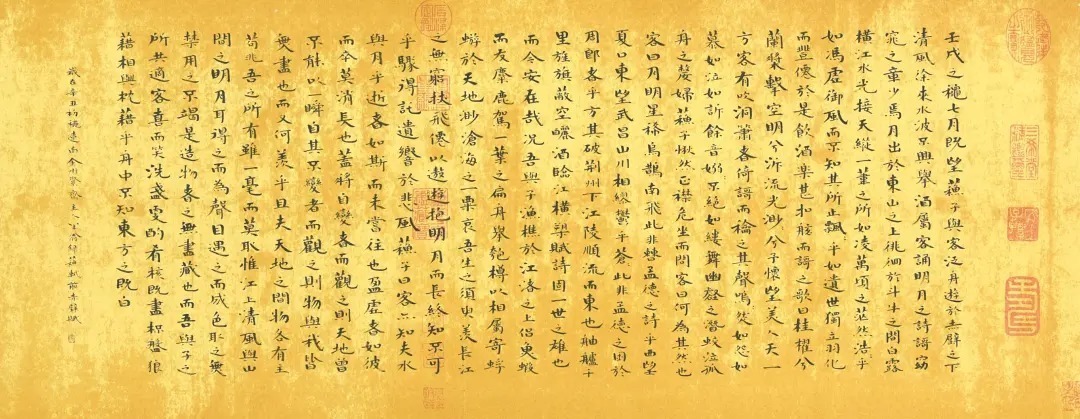 壬戌之穐七月既望蘓子與客泛舟遊於赤壁之下
清風徐来水波不興舉酒屬客誦明月之詩謌窈
窕之章少焉月出於東山之上徘徊於斗牛之間白露
橫江水光接天縱一葦之所如凌萬頃之茫然浩乎
如馮虛御風而不知其所止飄乎如遺世獨立羽化
而登僊於是飲酒樂甚扣舷而謌之歌曰桂櫂兮
蘭槳擊空明兮泝流光渺兮予懷望美人兮天一
方客有吹洞蕭者倚謌而龢之其聲嗚然如怨如
慕如泣如訴餘音嫋不絕如縷舞幽壑之潛蛟泣孤
舟之嫠婦蘓子愀然正襟危坐而問客曰何為其然也
客曰月明星稀烏鵲南飛此非曹孟德之詩乎西望
夏口東望武昌山川相繆鬱乎蒼此非孟德之困於
周郎者乎方其破荊州下江陵順流而東也舳艫千
里旌旗蔽空釃酒臨江橫槊賦詩固一世之雄也
而今安在哉況吾與子漁樵於江渚之上侶魚蝦
而友麋鹿駕一葉之扁舟舉匏樽以相屬寄蜉
蝣於天地渺滄海之一粟哀吾生之須臾羨長江
之無窮挾飛僊以遨遊抱明月而長終知不可
乎驟得託遺響於悲風蘓子曰客亦知夫水
與月乎逝者如斯而未嘗往也盈虛者如彼
而卒莫消長也蓋將自變者而觀之則天地曾
不能以一瞬自其不變者而觀之則物與我皆
無盡也而又何羨乎且夫天地之間物各有主
苟非吾之所有雖一毫而莫取惟江上清風與山
間之明月耳得之而為聲目遇之而成色取之無
禁用之不竭是造物者之無盡藏也而吾與子之
所共適客喜而笑洗盞更酌肴核既盡杯盤狼
藉相與枕藉乎舟中不知東方之既白
歲在辛丑初 蘓軾前赤壁賦